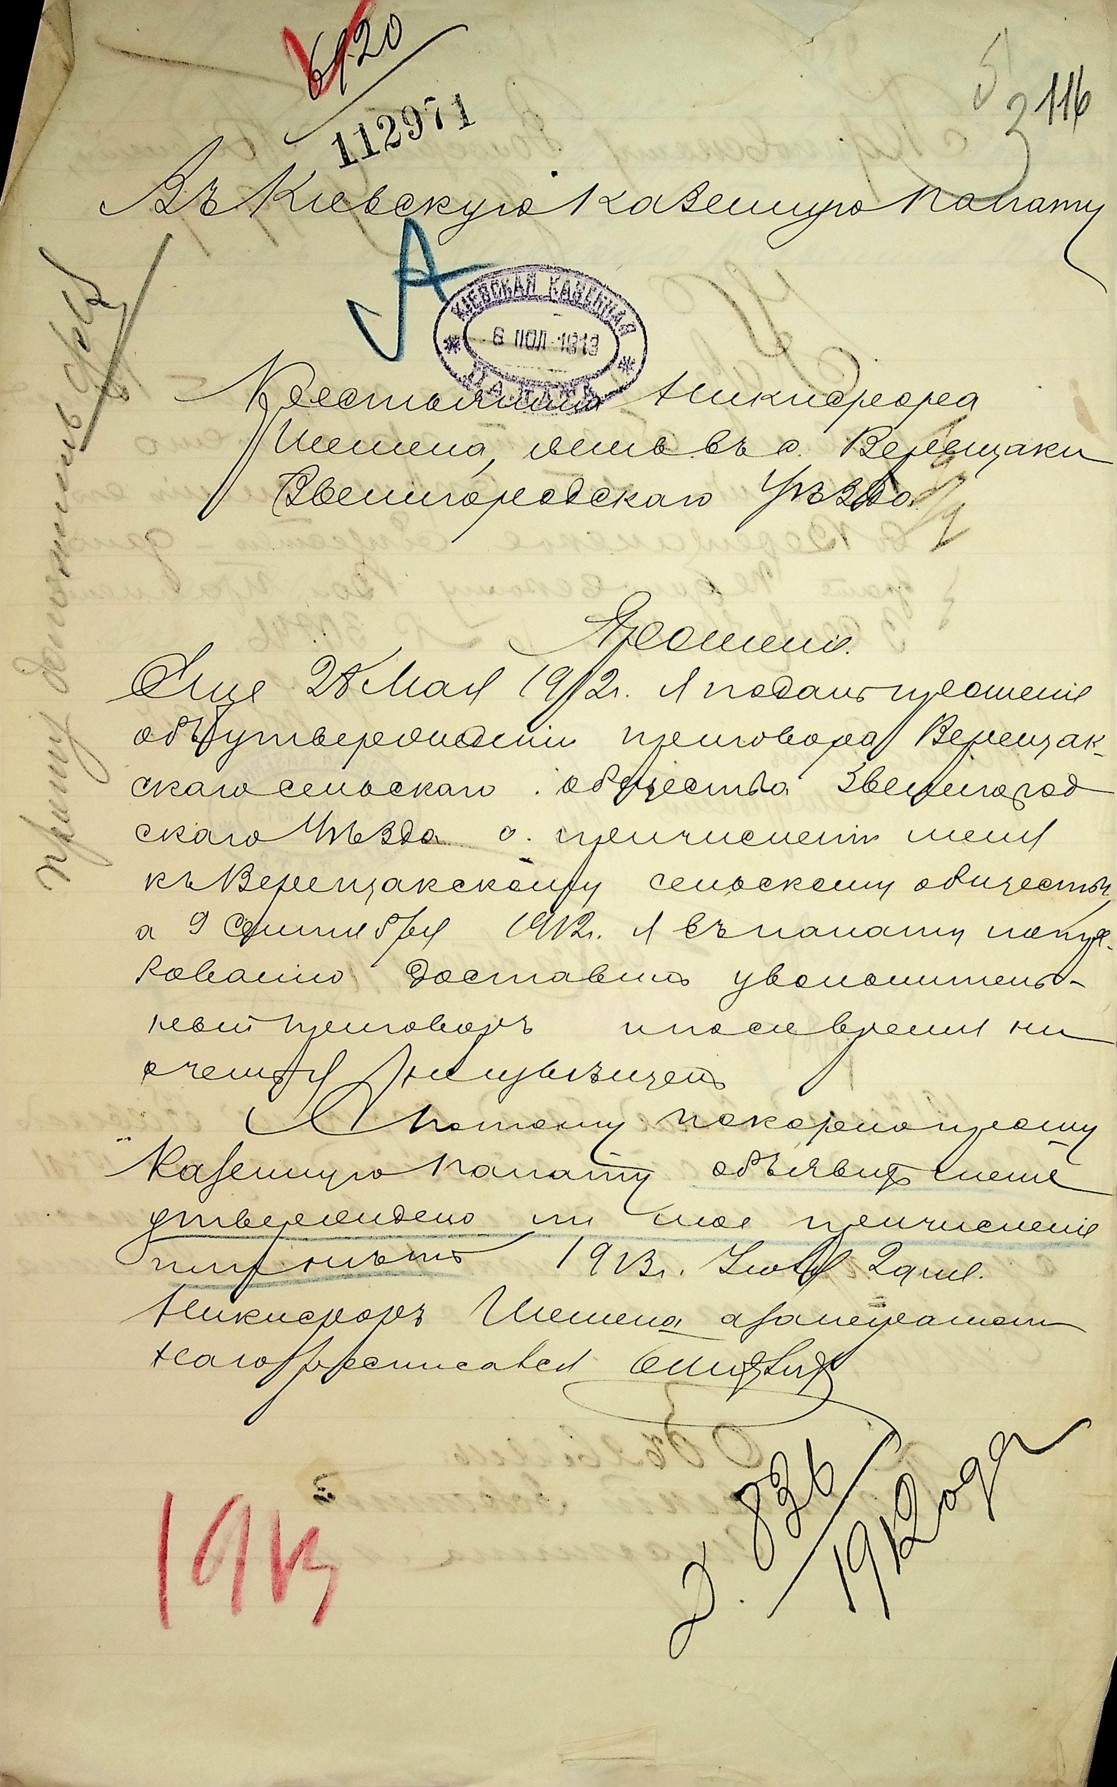 6/20
112971
116
Въ Кіевскую Казенную Палату
А
КІЕВСКАЯ КАЗЕННАЯ
6 ІЮЛ 1913
ПАЛАТА
Крестьянина Никифора
Шешеня, жит. въ с. Верещаки
Звенигородскаго Уѣзда.
Прошеніе.
Еще 28 Мая 1912 г. я подалъ прошеніе
объ утвержденіи приговора Верещак-
скаго сельскаго общества Звенигород
скаго Уѣзда о причисленіи меня
къ Верещакскому сельскому обществу,
а 9 Сентября 1912 г. я въ палату
доставилъ увольнитель-
ный приговоръ и после время ни
о чемъ я не извѣщенъ
А потому покорно прошу
Казенную Палату объявить мнѣ
утверждено ли мое причисленіе
или нѣтъ 1913 г. Іюля 2 дня.
Никифоръ Шешеня а за неграмот
наго росписался
прошу доложить
д. 836
1912 года
1913